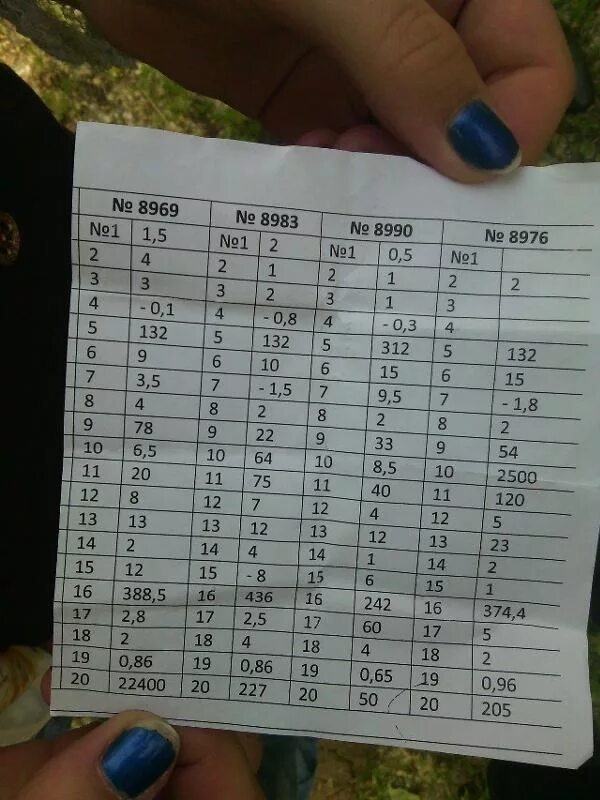 № 8969 № 8983 № 8990 № 8976
№1 1,5 №1 2 №1 0,5 №1
2 4 2 1 2 1 2 2
3 3 3 2 3 1 3
4 - 0,1 4 - 0,8 4 - 0,3 4
5 132 5 132 5 312 5 132
6 9 6 10 6 15 6 15
7 3,5 7 - 1,5 7 9,5 7 - 1,8
8 4 8 2 8 2 8 2
9 78 9 22 9 33 9 54
10 6,5 10 64 10 8,5 10 2500
11 20 11 75 11 40 11 120
12 8 12 7 12 4 12 5
13 13 13 12 13 12 13 23
14 2 14 4 14 1 14 2
15 12 15 - 8 15 6 15 1
16 388,5 16 436 16 242 16 374,4
17 2,8 17 2,5 17 60 17 5
18 2 18 4 18 4 18 2
19 0,86 19 0,86 19 0,65 19 0,96
20 22400 20 227 20 50 20 205